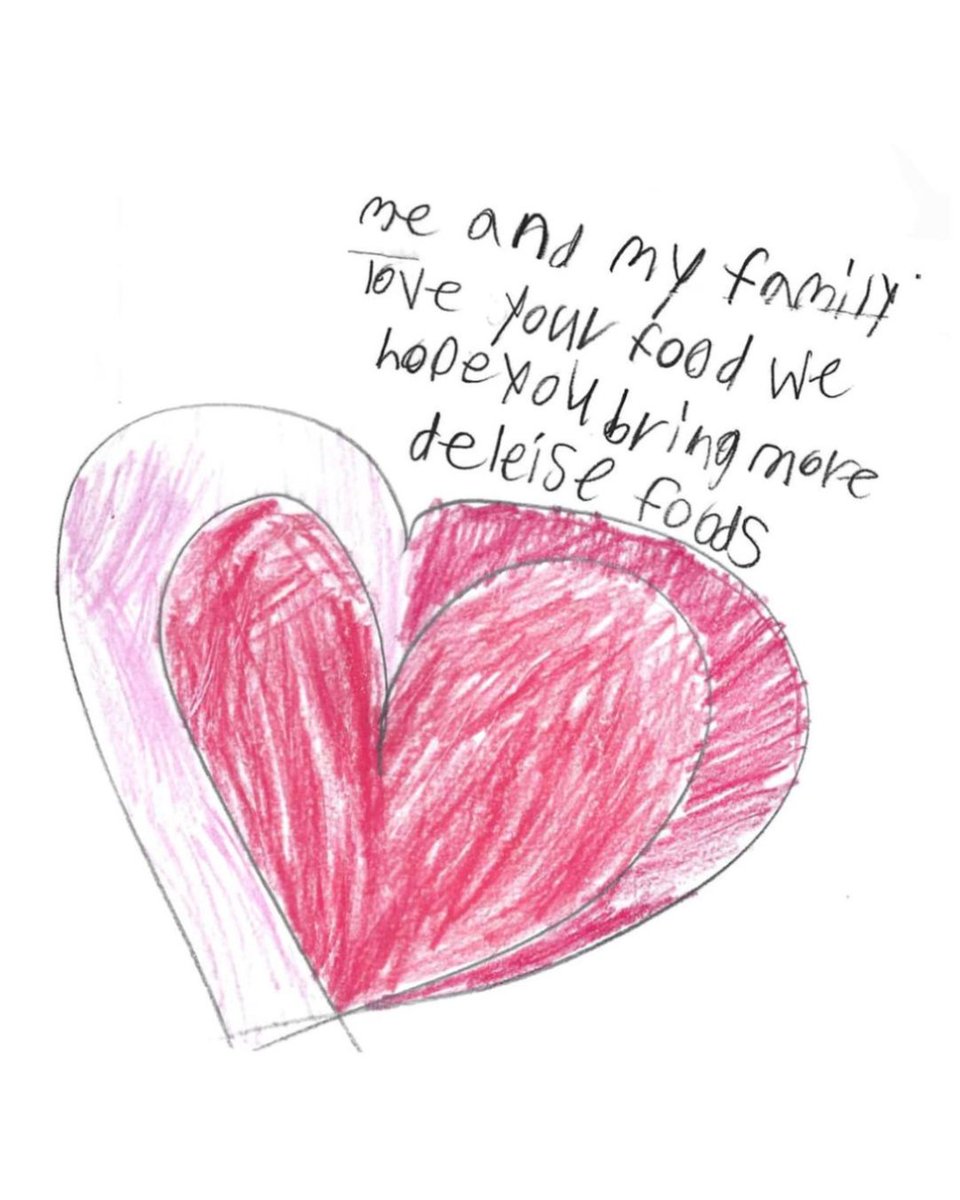 me and my family
love your food we
hope you bring more
deleise foods